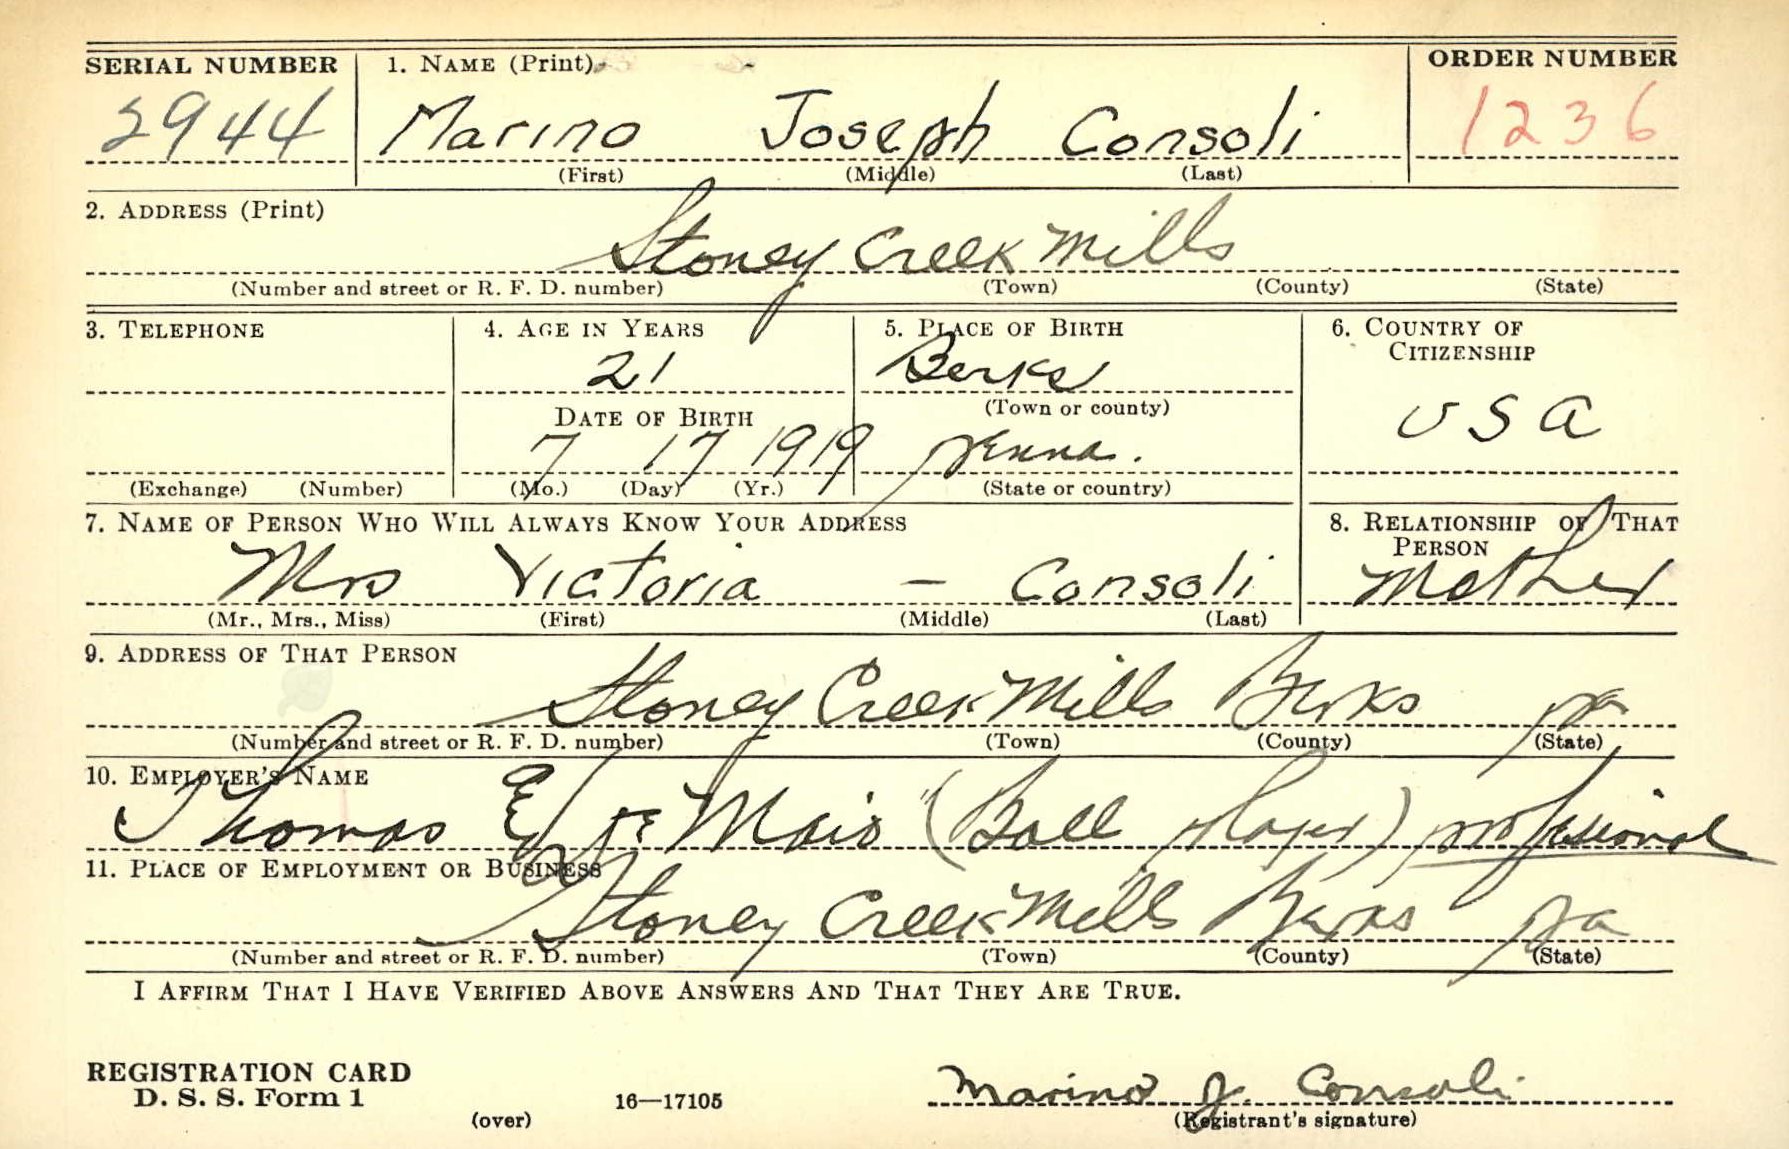 SERIAL NUMBER 1. NAME (Print) ORDER NUMBER
2944 Marino Joseph Consoli 1236
(First) (Middle) (Last)
2. ADDRESS (Print)
Stoney Creek Mills
(Number and street or R. F. D. number) (Town) (County) (State)
3. TELEPHONE 4. AGE IN YEARS 5. PLACE OF BIRTH 6. COUNTRY OF CITIZENSHIP
21 Berks
DATE OF BIRTH (Town or county) USA
7 17 1919 penna.
(Exchange) (Number) (Mo.) (Day) (Yr.) (State or country)
7. NAME OF PERSON WHO WILL ALWAYS KNOW YOUR ADDRESS 8. RELATIONSHIP OF THAT PERSON
Mrs Victoria — Consoli Mother
(Mr., Mrs., Miss) (First) (Middle) (Last)
9. ADDRESS OF THAT PERSON
Stoney Creek Mills Berks pa
(Number and street or R. F. D. number) (Town) (County) (State)
10. EMPLOYER'S NAME
Thomas (Ball player) professional
11. PLACE OF EMPLOYMENT OR BUSINESS
Stoney Creek Mills Berks pa
(Number and street or R. F. D. number) (Town) (County) (State)
I AFFIRM THAT I HAVE VERIFIED ABOVE ANSWERS AND THAT THEY ARE TRUE.
REGISTRATION CARD
D. S. S. Form 1 16—17105 Marino J. Consoli
(over) (Registrant's signature)